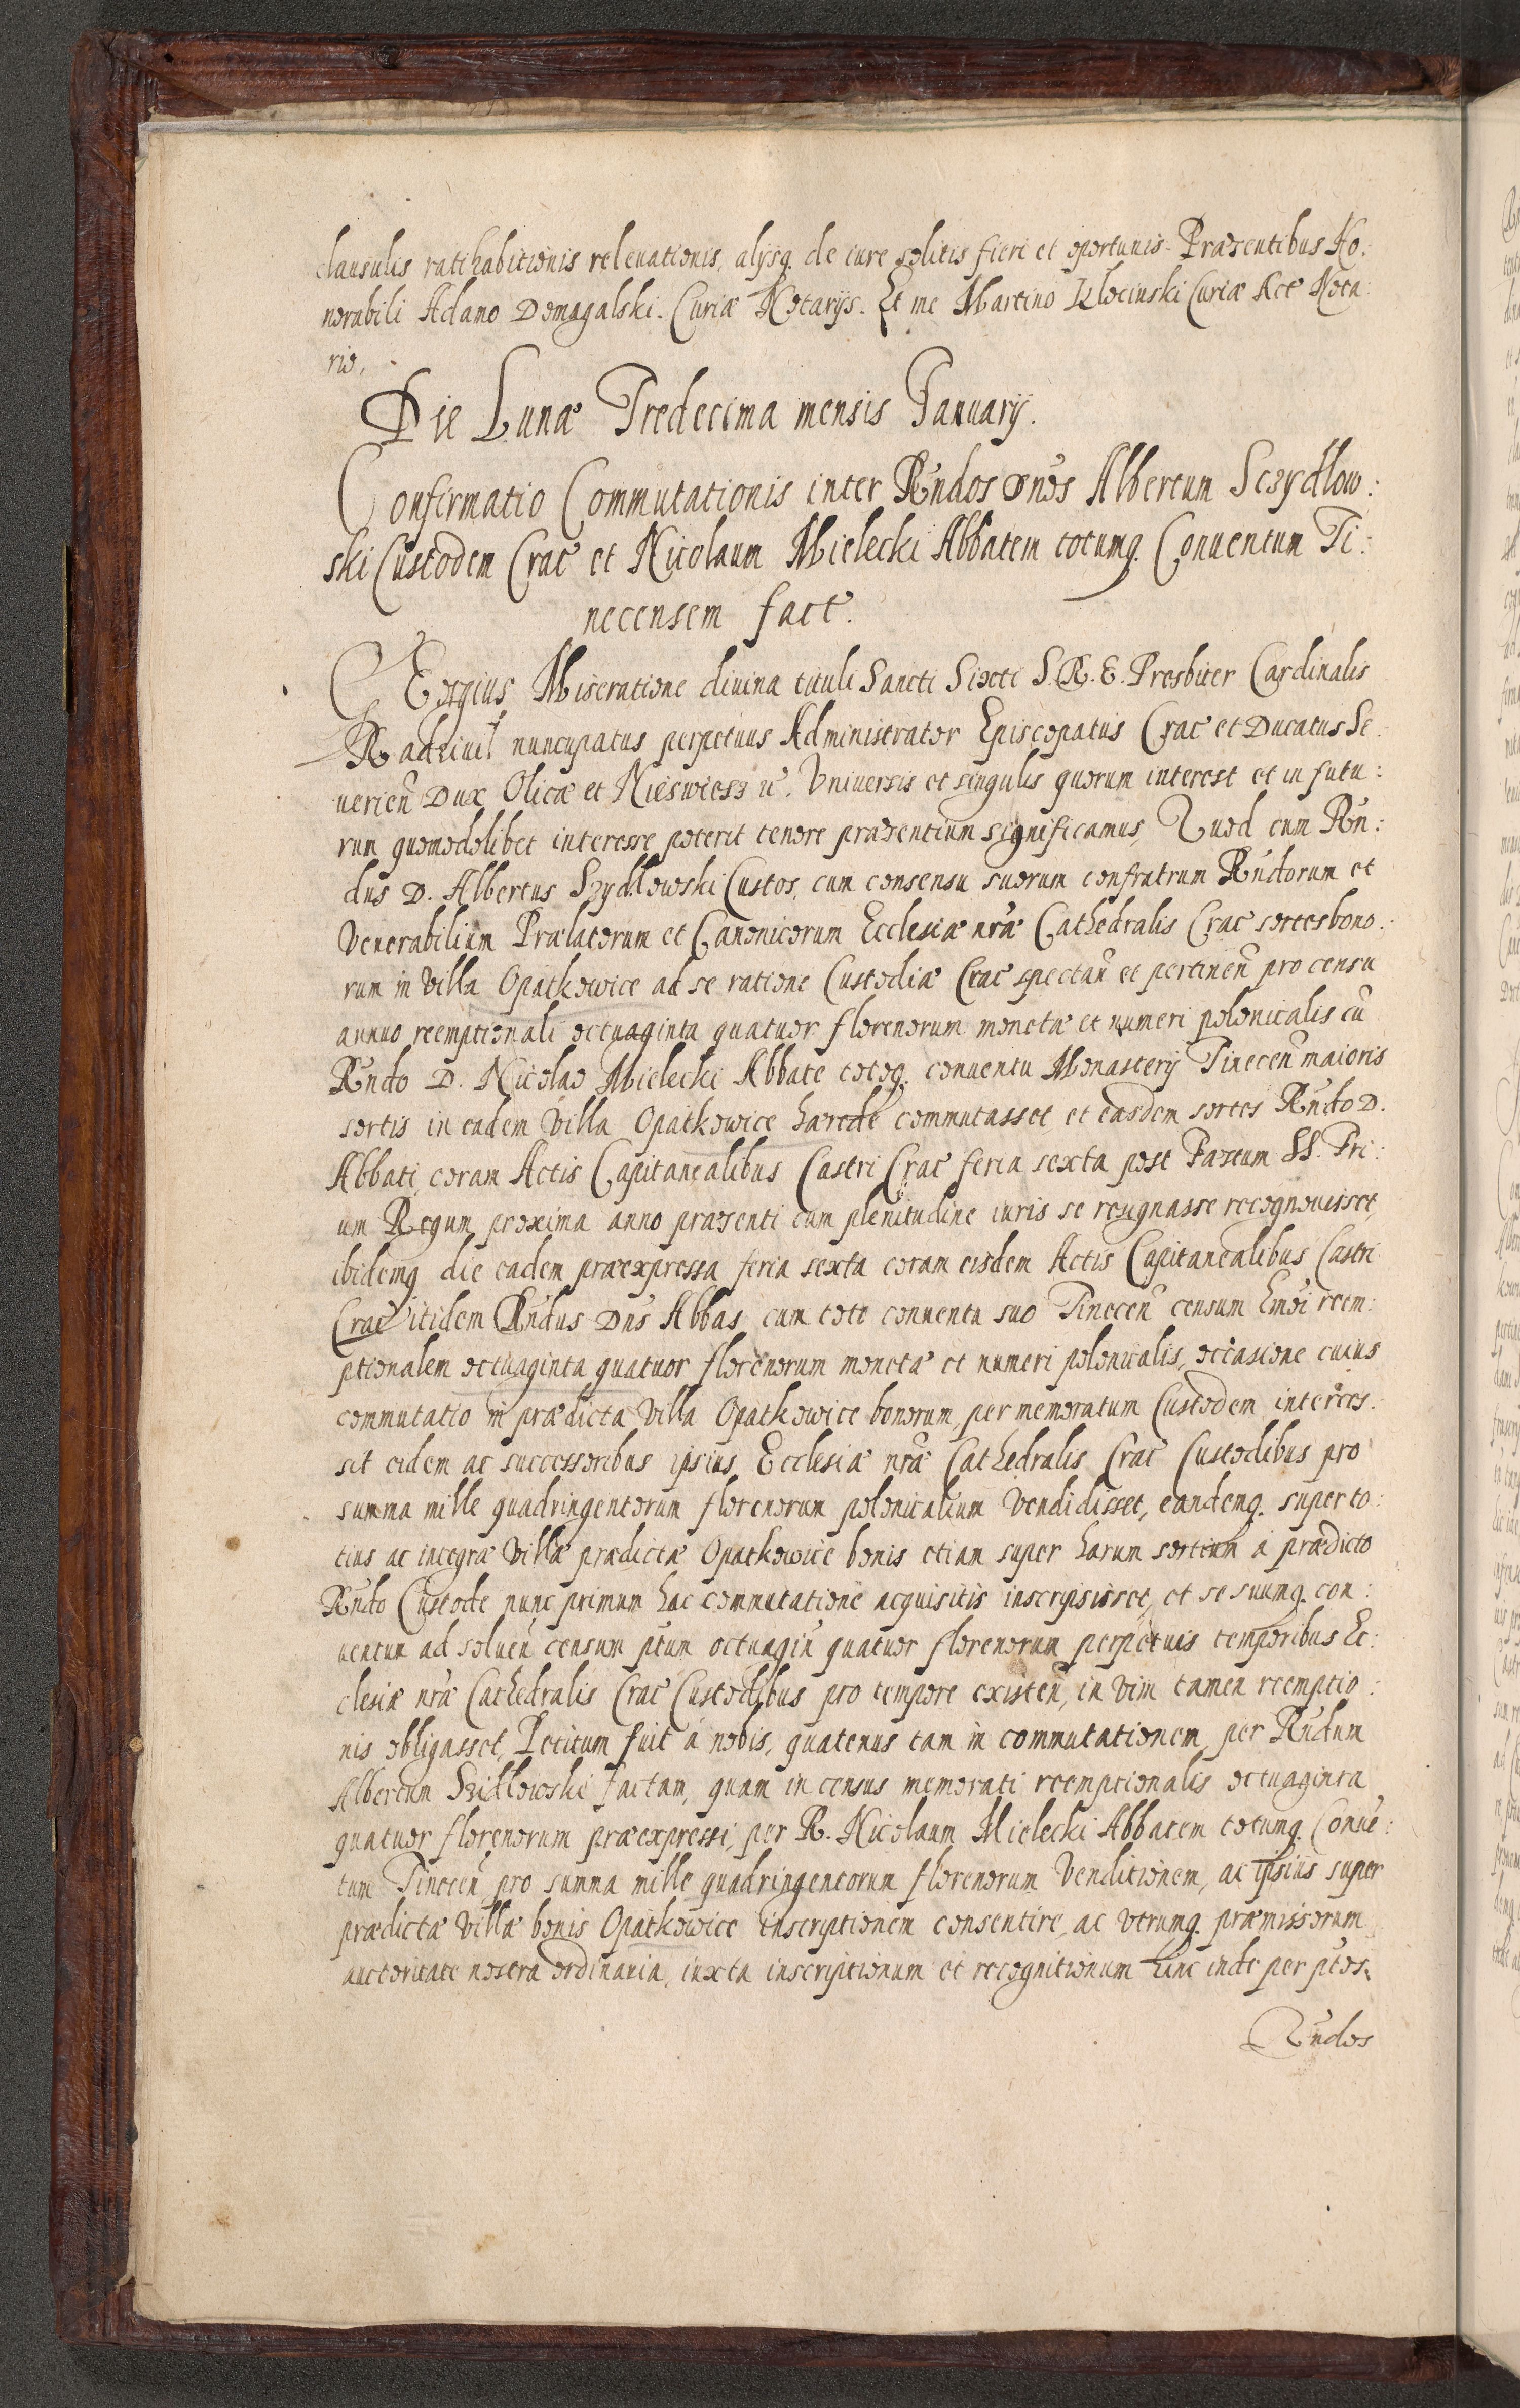 clausulis ratihabitionis releuationis, alijsq. de iure solitis fieri et oportunis. Præsentibus Ho:
norabili Adamo Domagalski. Curiæ Notarijs. Et me Martino Izlocinski Curiæ Act Nota:
rio,
Die Lunæ Tredecima mensis Januarij.
Confirmatio Commutationis inter Rndos Dnos Albertum Sczydlow:
ski Custodem Crac et Nicolaum Mielecki Abbatem totumq. Conuentum Ti:
necensem fact.
GEorgius Miseratione diuina tituli Sancti Sixti S.R.E. Presbiter Cardinalis
Radziuil nuncupatus perpetuus Administrator Episcopatus Crac et Ducatus Se:
uerien Dux Olicæ et Nieswiesz ꝛc. Vniuersis et singulis quorum interest et in futu:
rum quomodolibet interesse poterit tenore præsentium significamus, Quod cum Rn:
dus D. Albertus Szydlowski Custos, cum consensu suorum confratrum Rndorum et
Venerabilium Prælatorum et Canonicorum Ecclesiæ nræ Cathedralis Crac sortes bono:
rum in Villa Opatkowice ad se ratione Custodiæ Crac spectan et pertinen pro censu
annuo reemptionali octuaginta quatuor florenorum monetæ et numeri polonicalis cu
Rndo D. Nicolao Mielecki Abbate totoq. conuentu Monasterij Tinecen maioris
sortis in eadem Villa Opatkowice hærede commutasset, et easdem sortes Rndo D.
Abbati, coram Actis Capitanealibus Castri Crac feria sexta post Festum SS. Tri:
um Regum proxima anno præsenti cum plenitudine iuris se resignasse recognouisset,
ibidemq. die eadem præexpressa feria sexta coram eisdem Actis Capitanealibus Castri
Crac itidem Rndus Dns Abbas cum toto conuentu suo Tinecen censum Emoi reem:
ptionalem octuaginta quatuor florenorum monetæ et numeri polonicalis, occasione cuius
commutatio in prædicta Villa Opatkowice bonorum, per memoratum Custodem interces:
sit eidem ac successoribus ipsius Ecclesiæ nræ Cathedralis Crac Custodibus pro
summa mille quadringentorum florenorum polonicalium Vendidisset, eandemq. super to:
tius ac integræ Villæ prædictæ Opatkowice bonis etiam super harum sortium a prædicto
Rndo Custode nunc primum hac commutatione acquisitis inscripsisset, et se suumq. con:
uentum ad soluen censum ptum octuagin quatuor florenorum perpetuis temporibus Ec:
clesiæ nræ Cathedralis Crac Custodibus pro tempore existen, in vim tamen reemptio:
nis obligasset, Petitum fuit a nobis, quatenus tam in commutationem per Rndum
Albertum Szidlowski factam, quam in census memorati reemptionalis octuaginta
quatuor florenorum præexpressi, per R. Nicolaum Mielecki Abbatem totumq. Conue:
tum Tinecen pro summa mille quadringentorum florenorum Venditionem, ac ipsius super
prædictæ Villæ bonis Opatkowice inscriptionem consentire, ac vtrumq. præmissorum
auctoritate nostra ordinaria, iuxta inscriptionum et recognitionum hinc inde per ptos.
Rndos